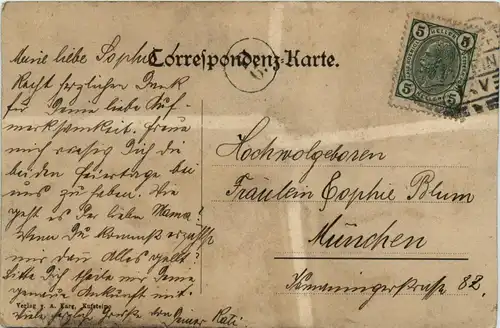 Correspondenz-Karte.
Meine liebe Sophie!
Recht herzlichen Dank
für Deine liebe Auf-
merksamkeit. Freue
mich riesig Dich die
beiden Feiertage bei
uns zu haben. Wie
geht es Der lieben Mama?
Wenn Du kommst erzähle
mir den Alles gelt?
Bitte Dich theile mir Deine
genaue Ankunft mit.
Viele herzliche Grüße von
Deiner Kati
Hochwolgeboren
Fräulein Sophie Blum
München
82.
Verlag v. A. Karg, Kufstein
5 HELLER 5
5 5